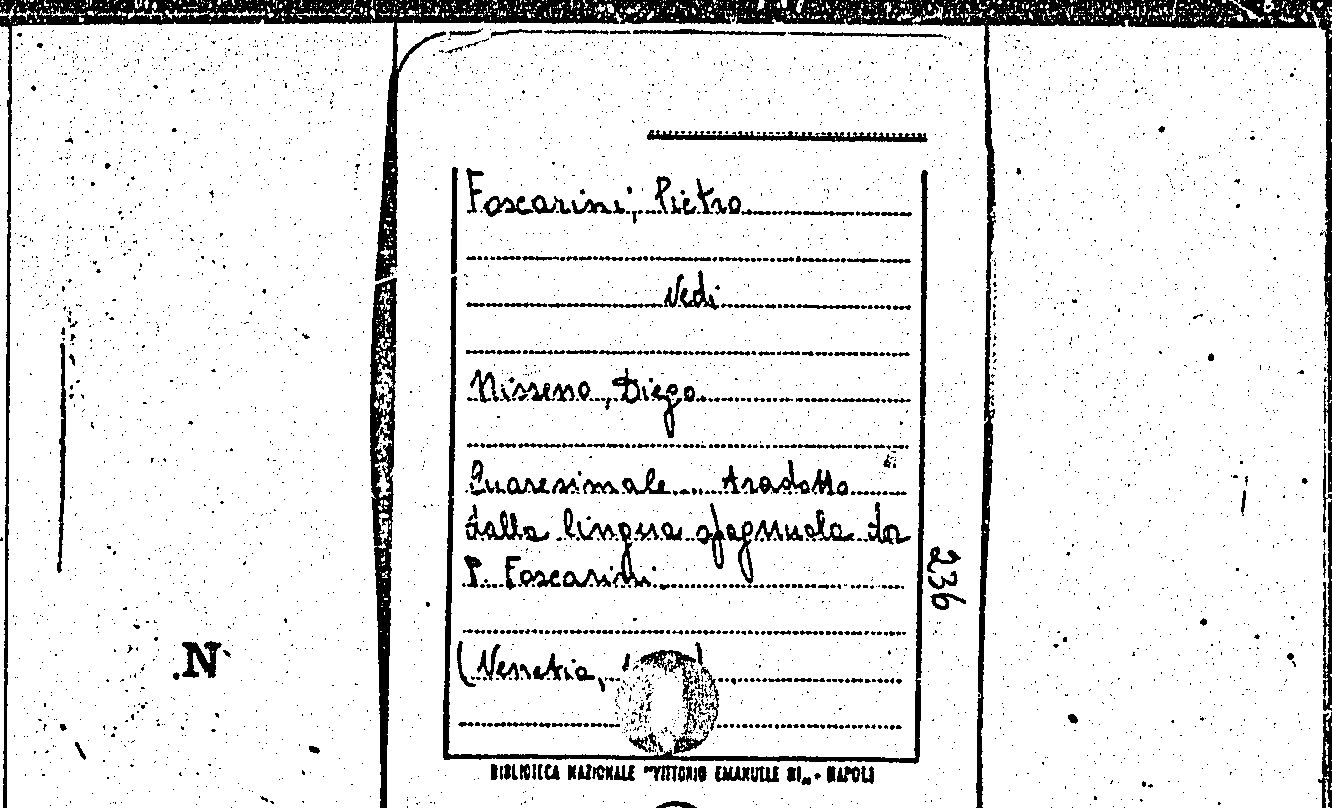 Foscarini, Pietro
Vedi
Nisseno, Diego
Quaresimale... tradotto
dalla lingua spagnuola da
P. Foscarini.
(Venetia,
236
.N
BIBLIOTECA NAZIONALE "VITTORIO EMANUELE III„ - NAPOLI